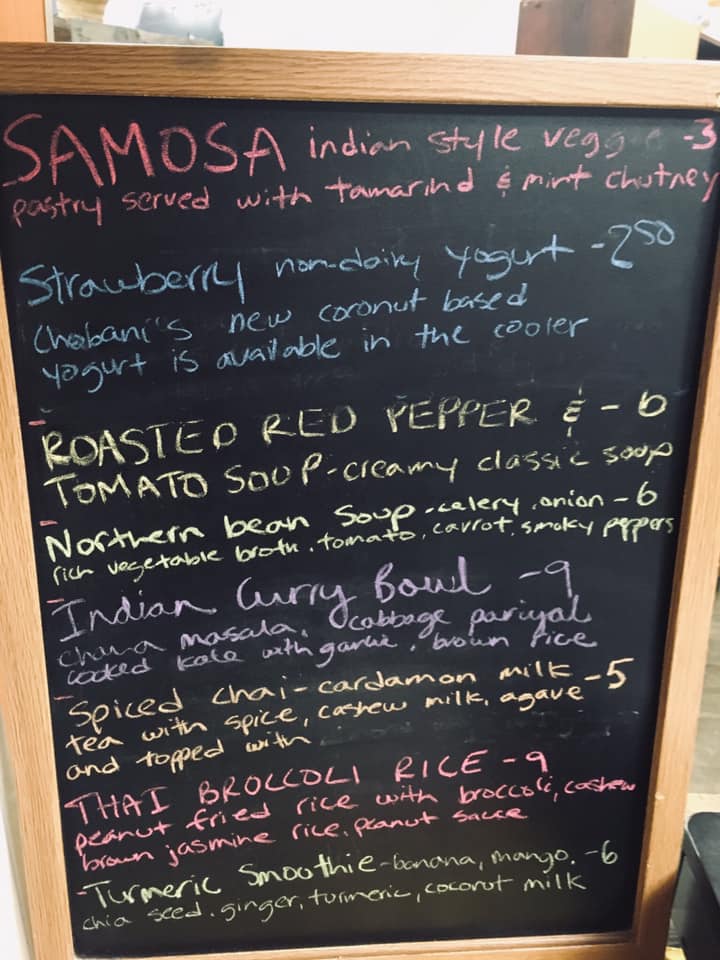 SAMOSA indian style vegg -3
pastry served with tamarind & mint chutney
Strawberry non-dairy yogurt -2 50
Chobani's new coconut based
yogurt is available in the cooler
ROASTED RED PEPPER & - 6
TOMATO SOUP-creamy classic soup
Northern bean Soup - celery, onion - 6
rich vegetable broth, tomato, carrot, smoky peppers
Indian Curry Bowl -9
chana masala, cabbage pariyal
cooked kale with garlic, brown rice
Spiced chai-cardamon milk -5
tea with spice, cashew milk, agave
and topped with
THAI BROCCOLI RICE -9
peanut fried rice with broccoli, cashew
brown jasmine rice, peanut sauce
-Turmeric Smoothie-banana, mango, -6
chia seed, ginger, turmeric, coconut milk